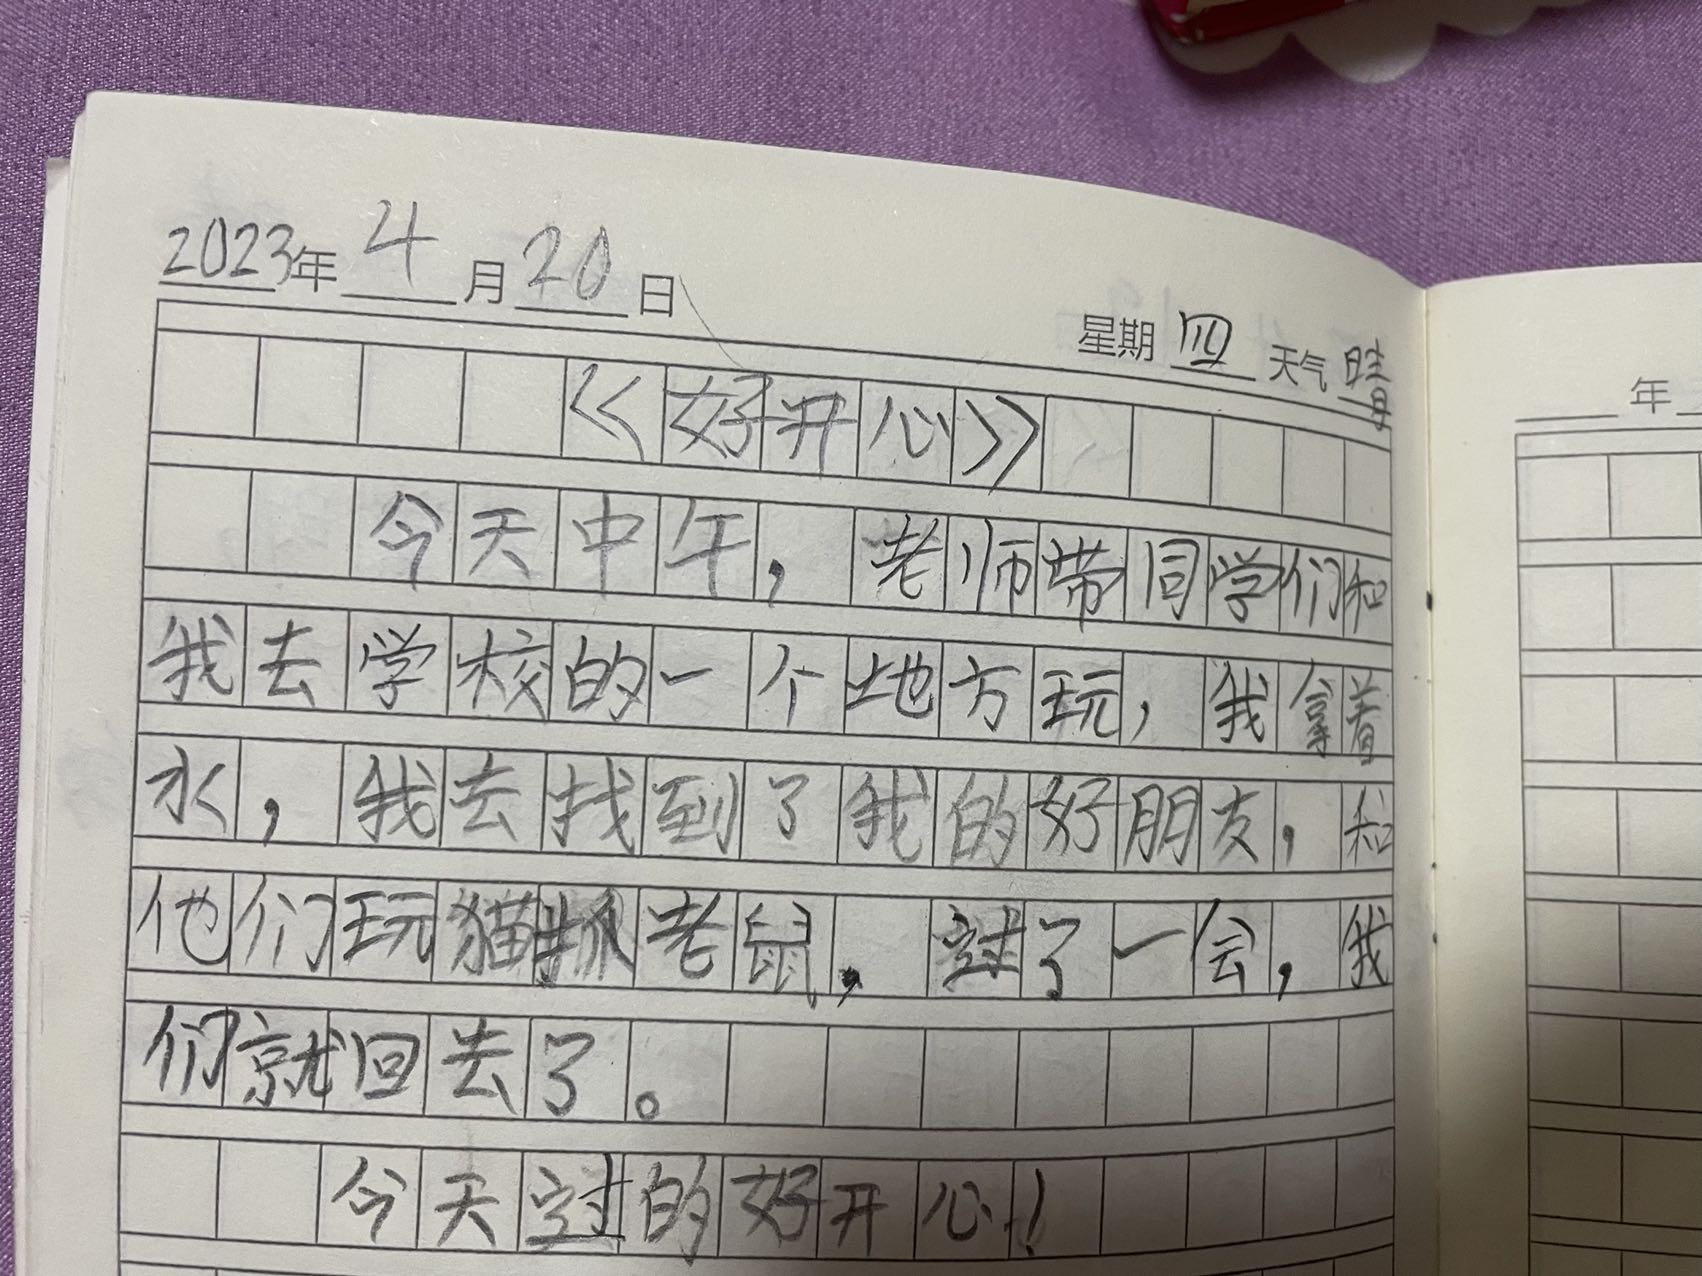 2023年4月20日 星期四 天气晴
<<好开心>>
今天中午，老师带同学们和
我去学校的一个地方玩，我拿着
水，我去找到了我的好朋友，和
他们玩猫抓老鼠，过了一会，我
们就回去了。
今天过的好开心！
年